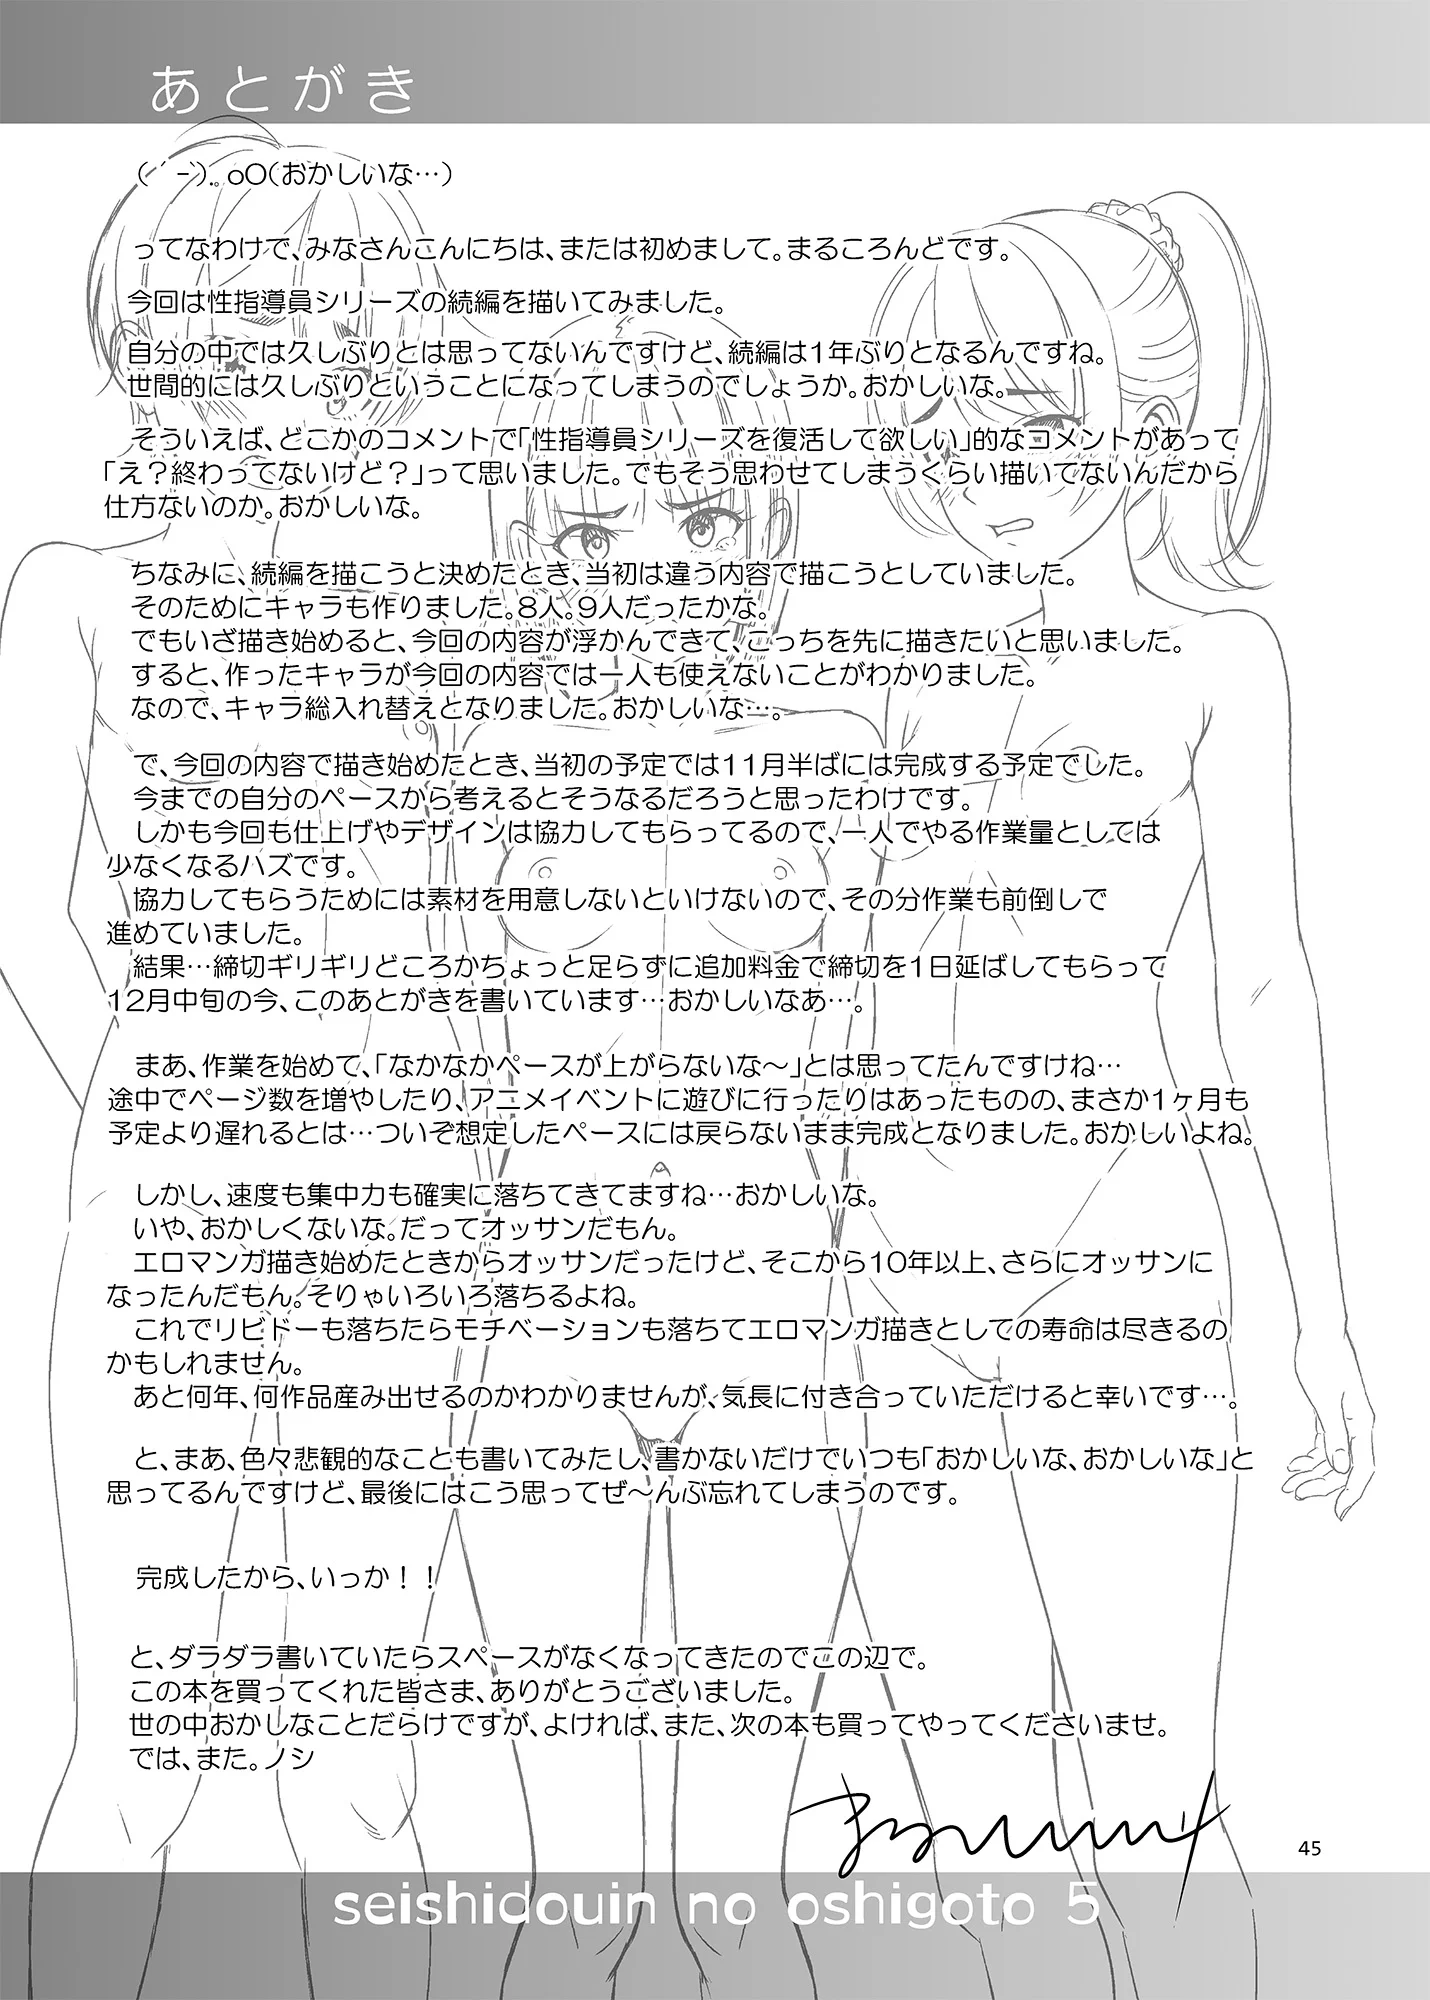 あとがき
( ´-`).｡oO(おかしいな…)
ってなわけで、みなさんこんにちは、または初めまして。まるころんどです。
今回は性指導員シリーズの続編を描いてみました。
自分の中では久しぶりとは思ってないんですけど、続編は1年ぶりとなるんですね。
世間的には久しぶりということになってしまうのでしょうか。おかしいな。
そういえば、どこかのコメントで「性指導員シリーズを復活して欲しい」的なコメントがあって
「え？終わってないけど？」って思いました。でもそう思わせてしまうくらい描いてないんだから
仕方ないのか。おかしいな。
ちなみに、続編を描こうと決めたとき、当初は違う内容で描こうとしていました。
そのためにキャラも作りました。8人、9人だったかな。
でもいざ描き始めると、今回の内容が浮かんできて、こっちを先に描きたいと思いました。
すると、作ったキャラが今回の内容では一人も使えないことがわかりました。
なので、キャラ総入れ替えとなりました。おかしいな…。
で、今回の内容で描き始めたとき、当初の予定では11月半ばには完成する予定でした。
今までの自分のペースから考えるとそうなるだろうと思ったわけです。
しかも今回も仕上げやデザインは協力してもらってるので、一人でやる作業量としては
少なくなるハズです。
協力してもらうためには素材を用意しないといけないので、その分作業も前倒しで
進めていました。
結果…締切ギリギリどころかちょっと足らずに追加料金で締切を1日延ばしてもらって
12月中旬の今、このあとがきを書いています…おかしいなあ…。
まあ、作業を始めて、「なかなかペースが上がらないな～」とは思ってたんですけね…
途中でページ数を増やしたり、アニメイベントに遊びに行ったりはあったものの、まさか1ヶ月も
予定より遅れるとは…ついぞ想定したペースには戻らないまま完成となりました。おかしいよね。
しかし、速度も集中力も確実に落ちてきてますね…おかしいな。
いや、おかしくないな。だってオッサンだもん。
エロマンガ描き始めたときからオッサンだったけど、そこから10年以上、さらにオッサンに
なったんだもん。そりゃいろいろ落ちるよね。
これでリビドーも落ちたらモチベーションも落ちてエロマンガ描きとしての寿命は尽きるの
かもしれません。
あと何年、何作品産み出せるのかわかりませんが、気長に付き合っていただけると幸いです…。
と、まあ、色々悲観的なことも書いてみたし、書かないだけでいつも「おかしいな、おかしいな」と
思ってるんですけど、最後にはこう思ってぜ～んぶ忘れてしまうのです。
完成したから、いっか！！
と、ダラダラ書いていたらスペースがなくなってきたのでこの辺で。
この本を買ってくれた皆さま、ありがとうございました。
世の中おかしなことだらけですが、よければ、また、次の本も買ってやってくださいませ。
では、また。ノシ
45
seishidouin no oshigoto 5